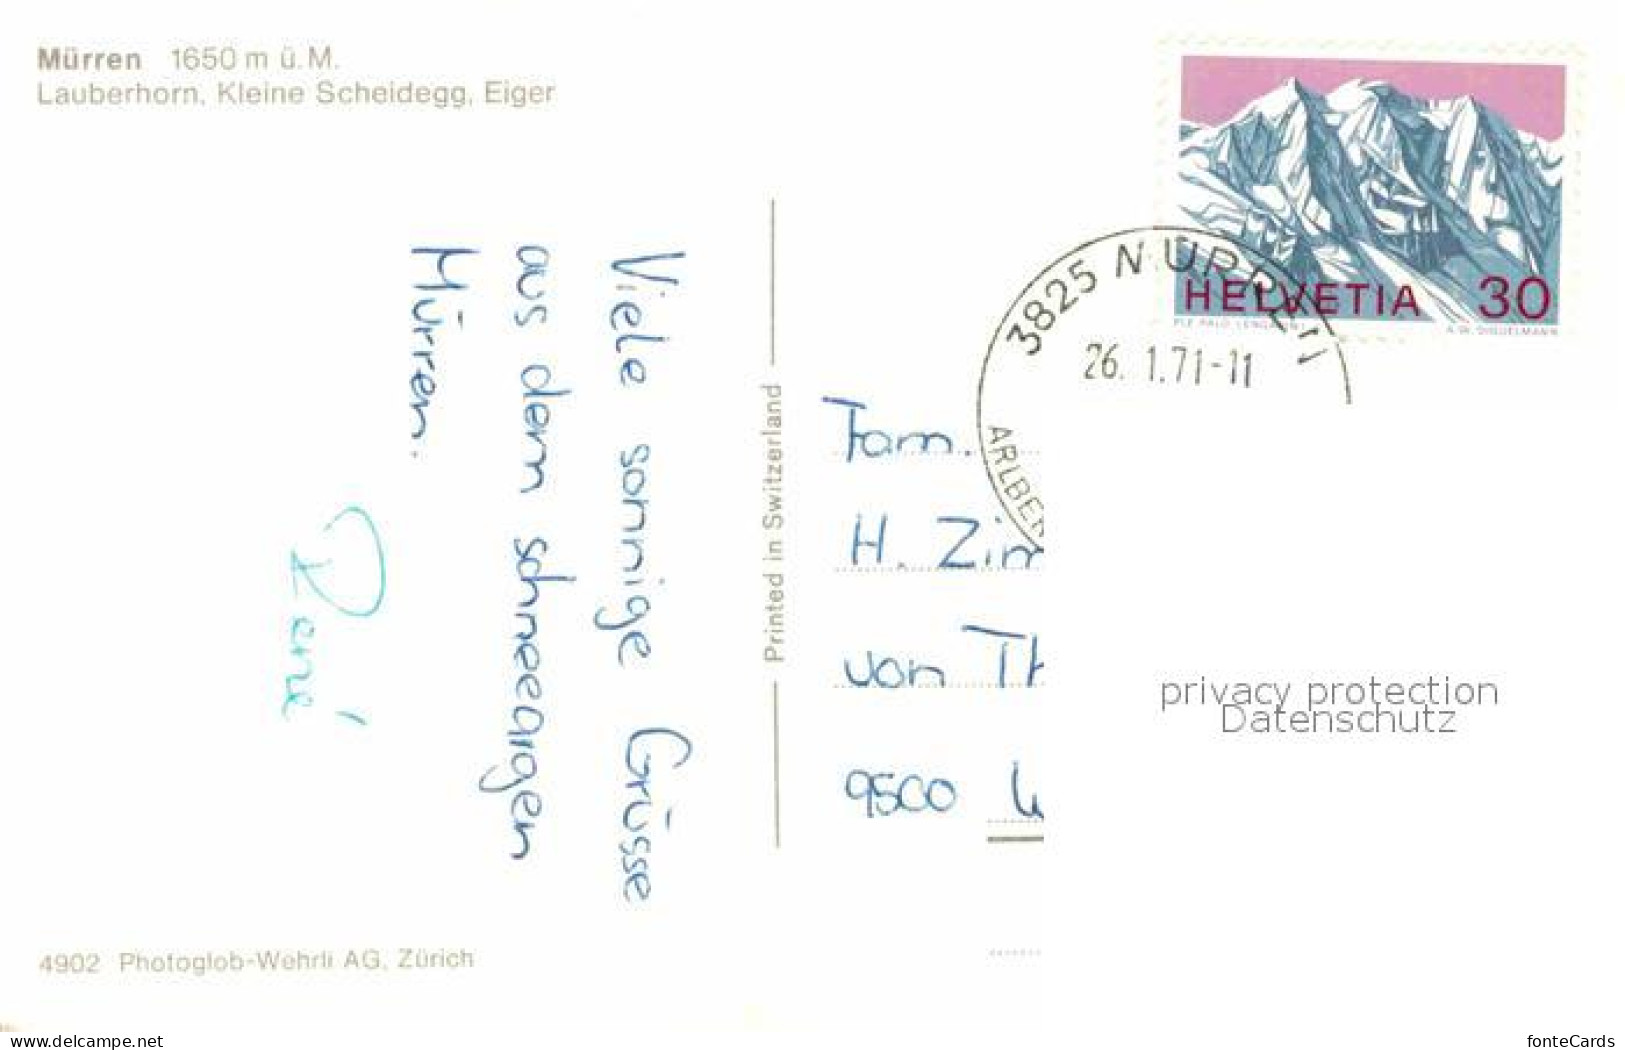 Mürren 1650 m ü. M.
Lauberhorn, Kleine Scheidegg, Eiger
Viele sonnige Grüsse
aus dem schneearigen
Mürren.
René
Printed in Switzerland
4902 Photoglob-Wehrli AG, Zürich
HELVETIA 30
A.W. DIGGELMANN
3825 MÜRREN
26. 1.71-11
Fam.
H. Zim
von Th
9500 W
privacy protection
Datenschutz
www.delcampe.net
fonteCards